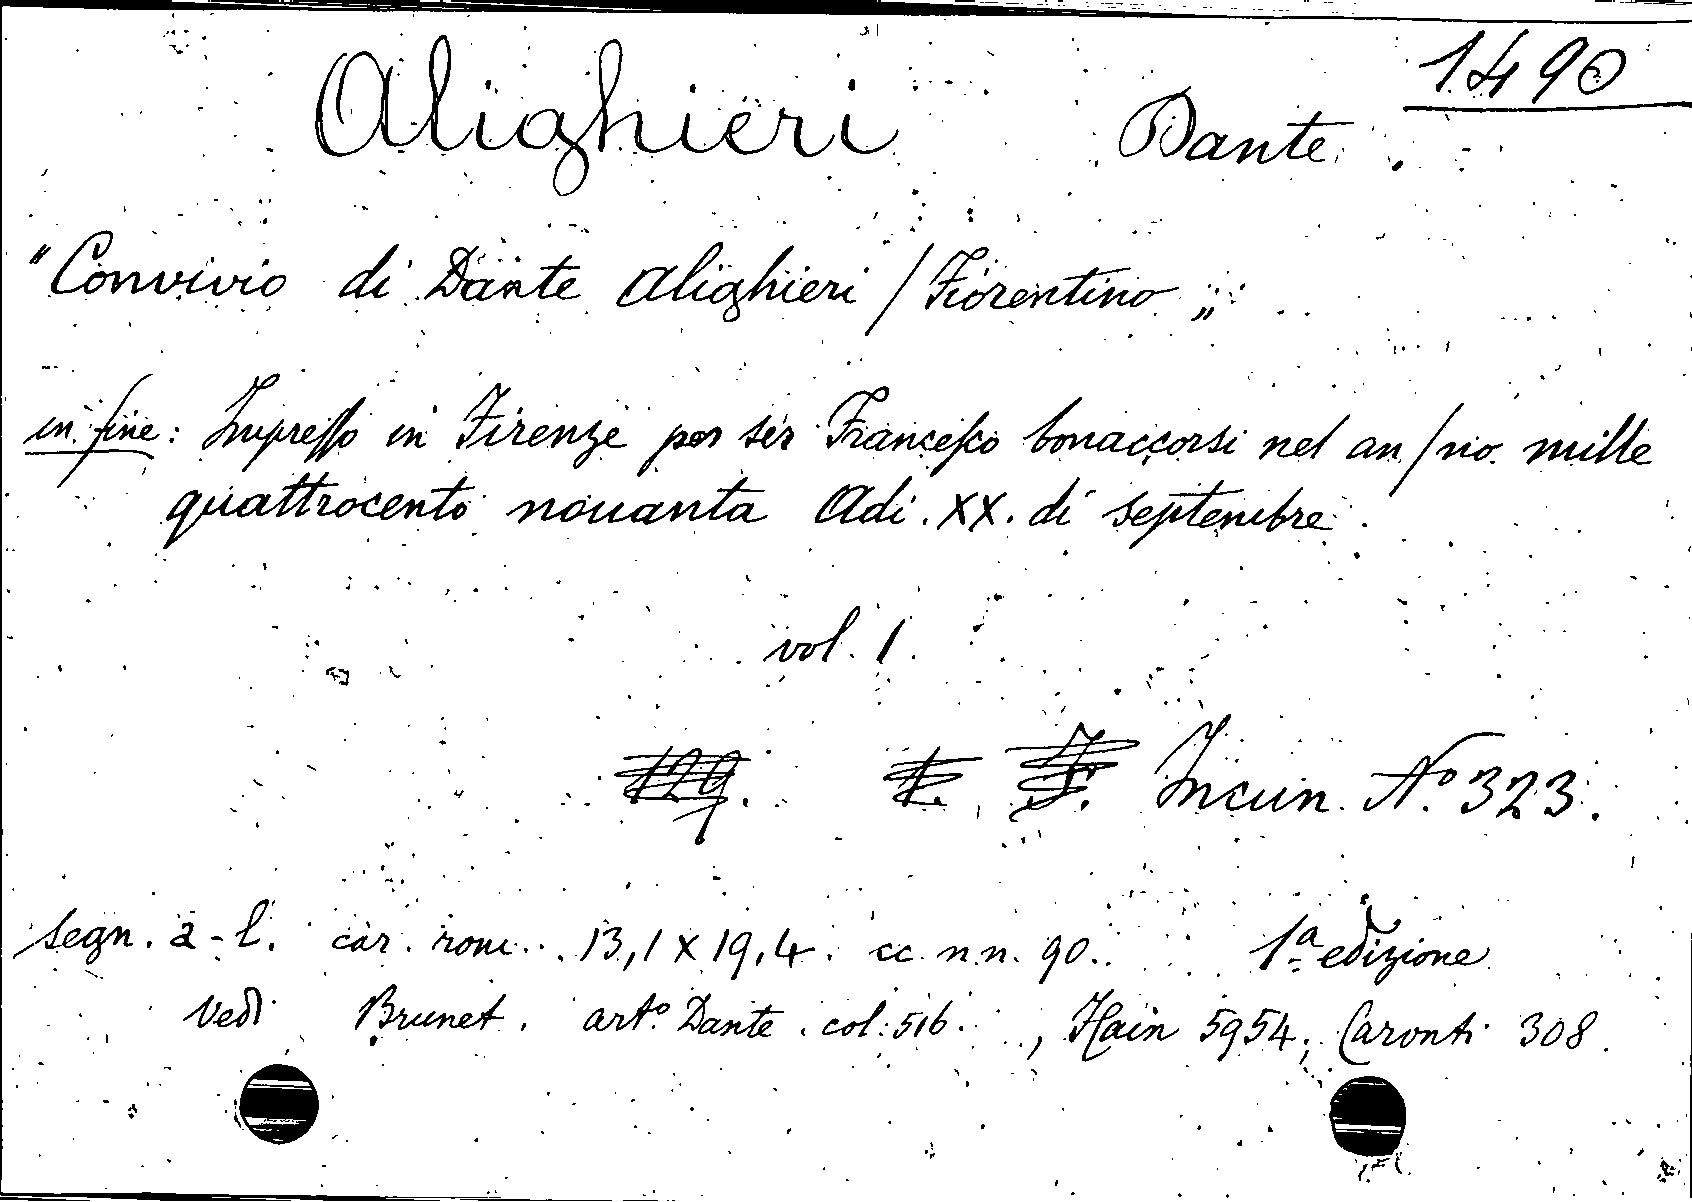 1490
Alighieri Dante.
"Convivio di Dante Alighieri / Fiorentino „
in fine: Impreſſo in Firenze per ser Franceſco bonaccorsi nel an / no. mille
quattrocento nouanta Adi. XX. di septembre.
vol. 1.
Incun. Nº 323.
segn. a-l. car. rom. 13,1 x 19,4. cc. n.n. 90. 1ª edizione
Vedi Brunet. artº Dante. col: 516., Hain 5954; Caronti 308.